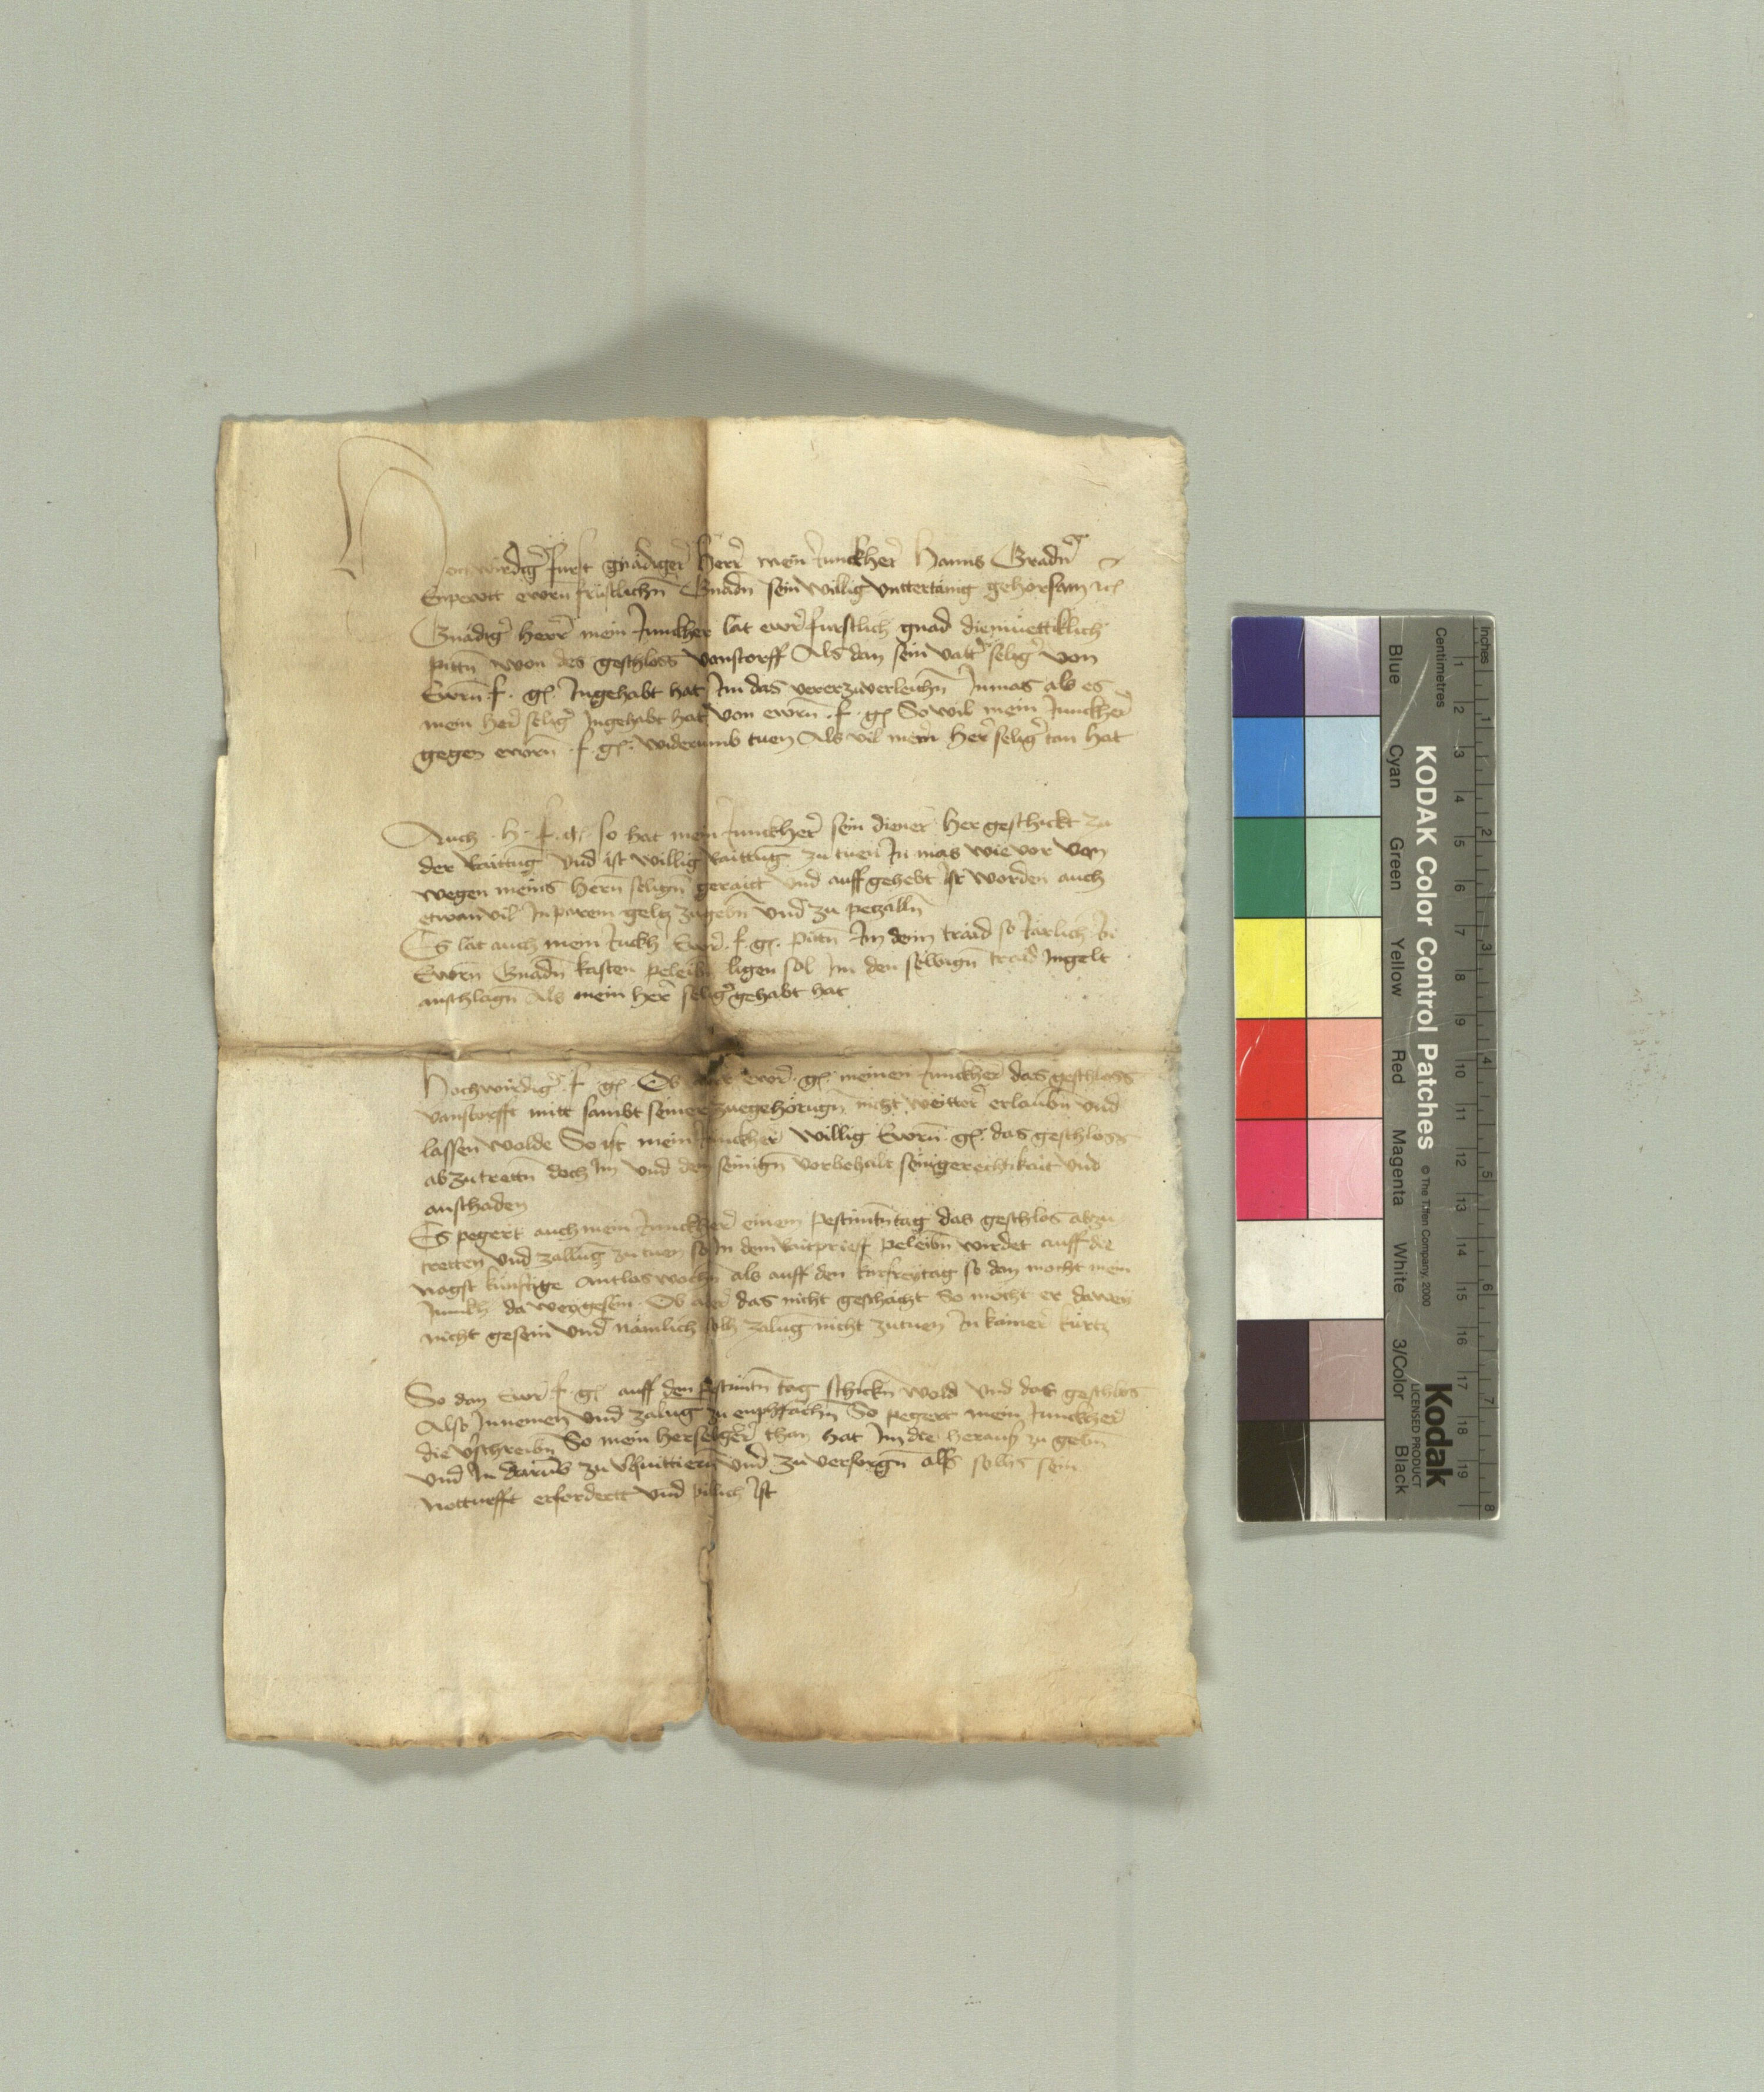 Hochwirdig' furst gnadiger Herr mein Junckher Hanns Gradn'
Enpewtt ewrn frustlichn Gnadn sein willig unttertanig gehorsam etc
Gnadig' herr mein Junkher lat ewr furstlich gnad diemuettiklich
pittn von des geschloss vanstorff Als dan sein vatt' selig' von
Ewrn . f . g. Ingehabt hat Im das verer zuverleichn Inmas als es
mein her' selig' Ingehabt hat von ewrn . f . g. So wil mein Junckher
gegen ewrn . f . g. widerumb tuen Als vil mein her' selig' tan hat
Auch . h . f . g. so hat mein Junckher sein diener her geschickt zu
der raittug und ist willig raittug zu tuen In mas wie vor von
wegen meins hern selign geraitt und auff gehebt ist worden auch
etwan vil In parem geltz zugebn und zu pezalln
Es lat auch mein Juckh' Ewr . f . g. pittn Im dein traid so Jarlich bi
Ewrn Gnadn kasten peleibn ligen sol Im den selbign traid Ingelt
anschlagn Als mein her' selig' gehabt hat
Hochwirdig' . f . g. Ob aber ewr . g. meinen Junckher das geschloss
vanstorfft mitt sambt seiner zuegehorugn nicht weitter erlaubn und
lassen wolde So ist mein Junckher willig Ewrn . g. das geschloss
abzutrettn doch Im und den seinign vorbehalt sein gerechtikait und
anschaden
Es pegert auch mein Junckher einem pestimtn tag das geschlos abzu
tretten und zallug zu tuen so In dem raitprieff peleibn wirdet auff die
nagst kunftige Antlas wochn als auff den karfreytag so dan mocht mein
Junkh' da weg gesein . Ob aber das nicht geschacht So mocht er dawey
nicht gesein und namlich solh zalug nicht zutuen In kainer kurtz
So dan Ewr . f . g. auff den pestimtn tag schickn wold und das geschlos
Also Innemen und zalug zu enphfachn So pegert mein Junckher
die vschreibn So mein her seliger than hat Im die heraus zu gebn
und In darub zu vquittiern und zu versorgn alls solhs sein
notturfft erfordertt und pillich ist
KODAK Color Control Patches © The Tiffen Company, 2000
Kodak
LICENSED PRODUCT
Inches 1 2 3 4 5 6 7 8
Centimetres 1 2 3 4 5 6 7 8 9 10 11 12 13 14 15 16 17 18 19
Blue Cyan Green Yellow Red Magenta White 3/Color Black